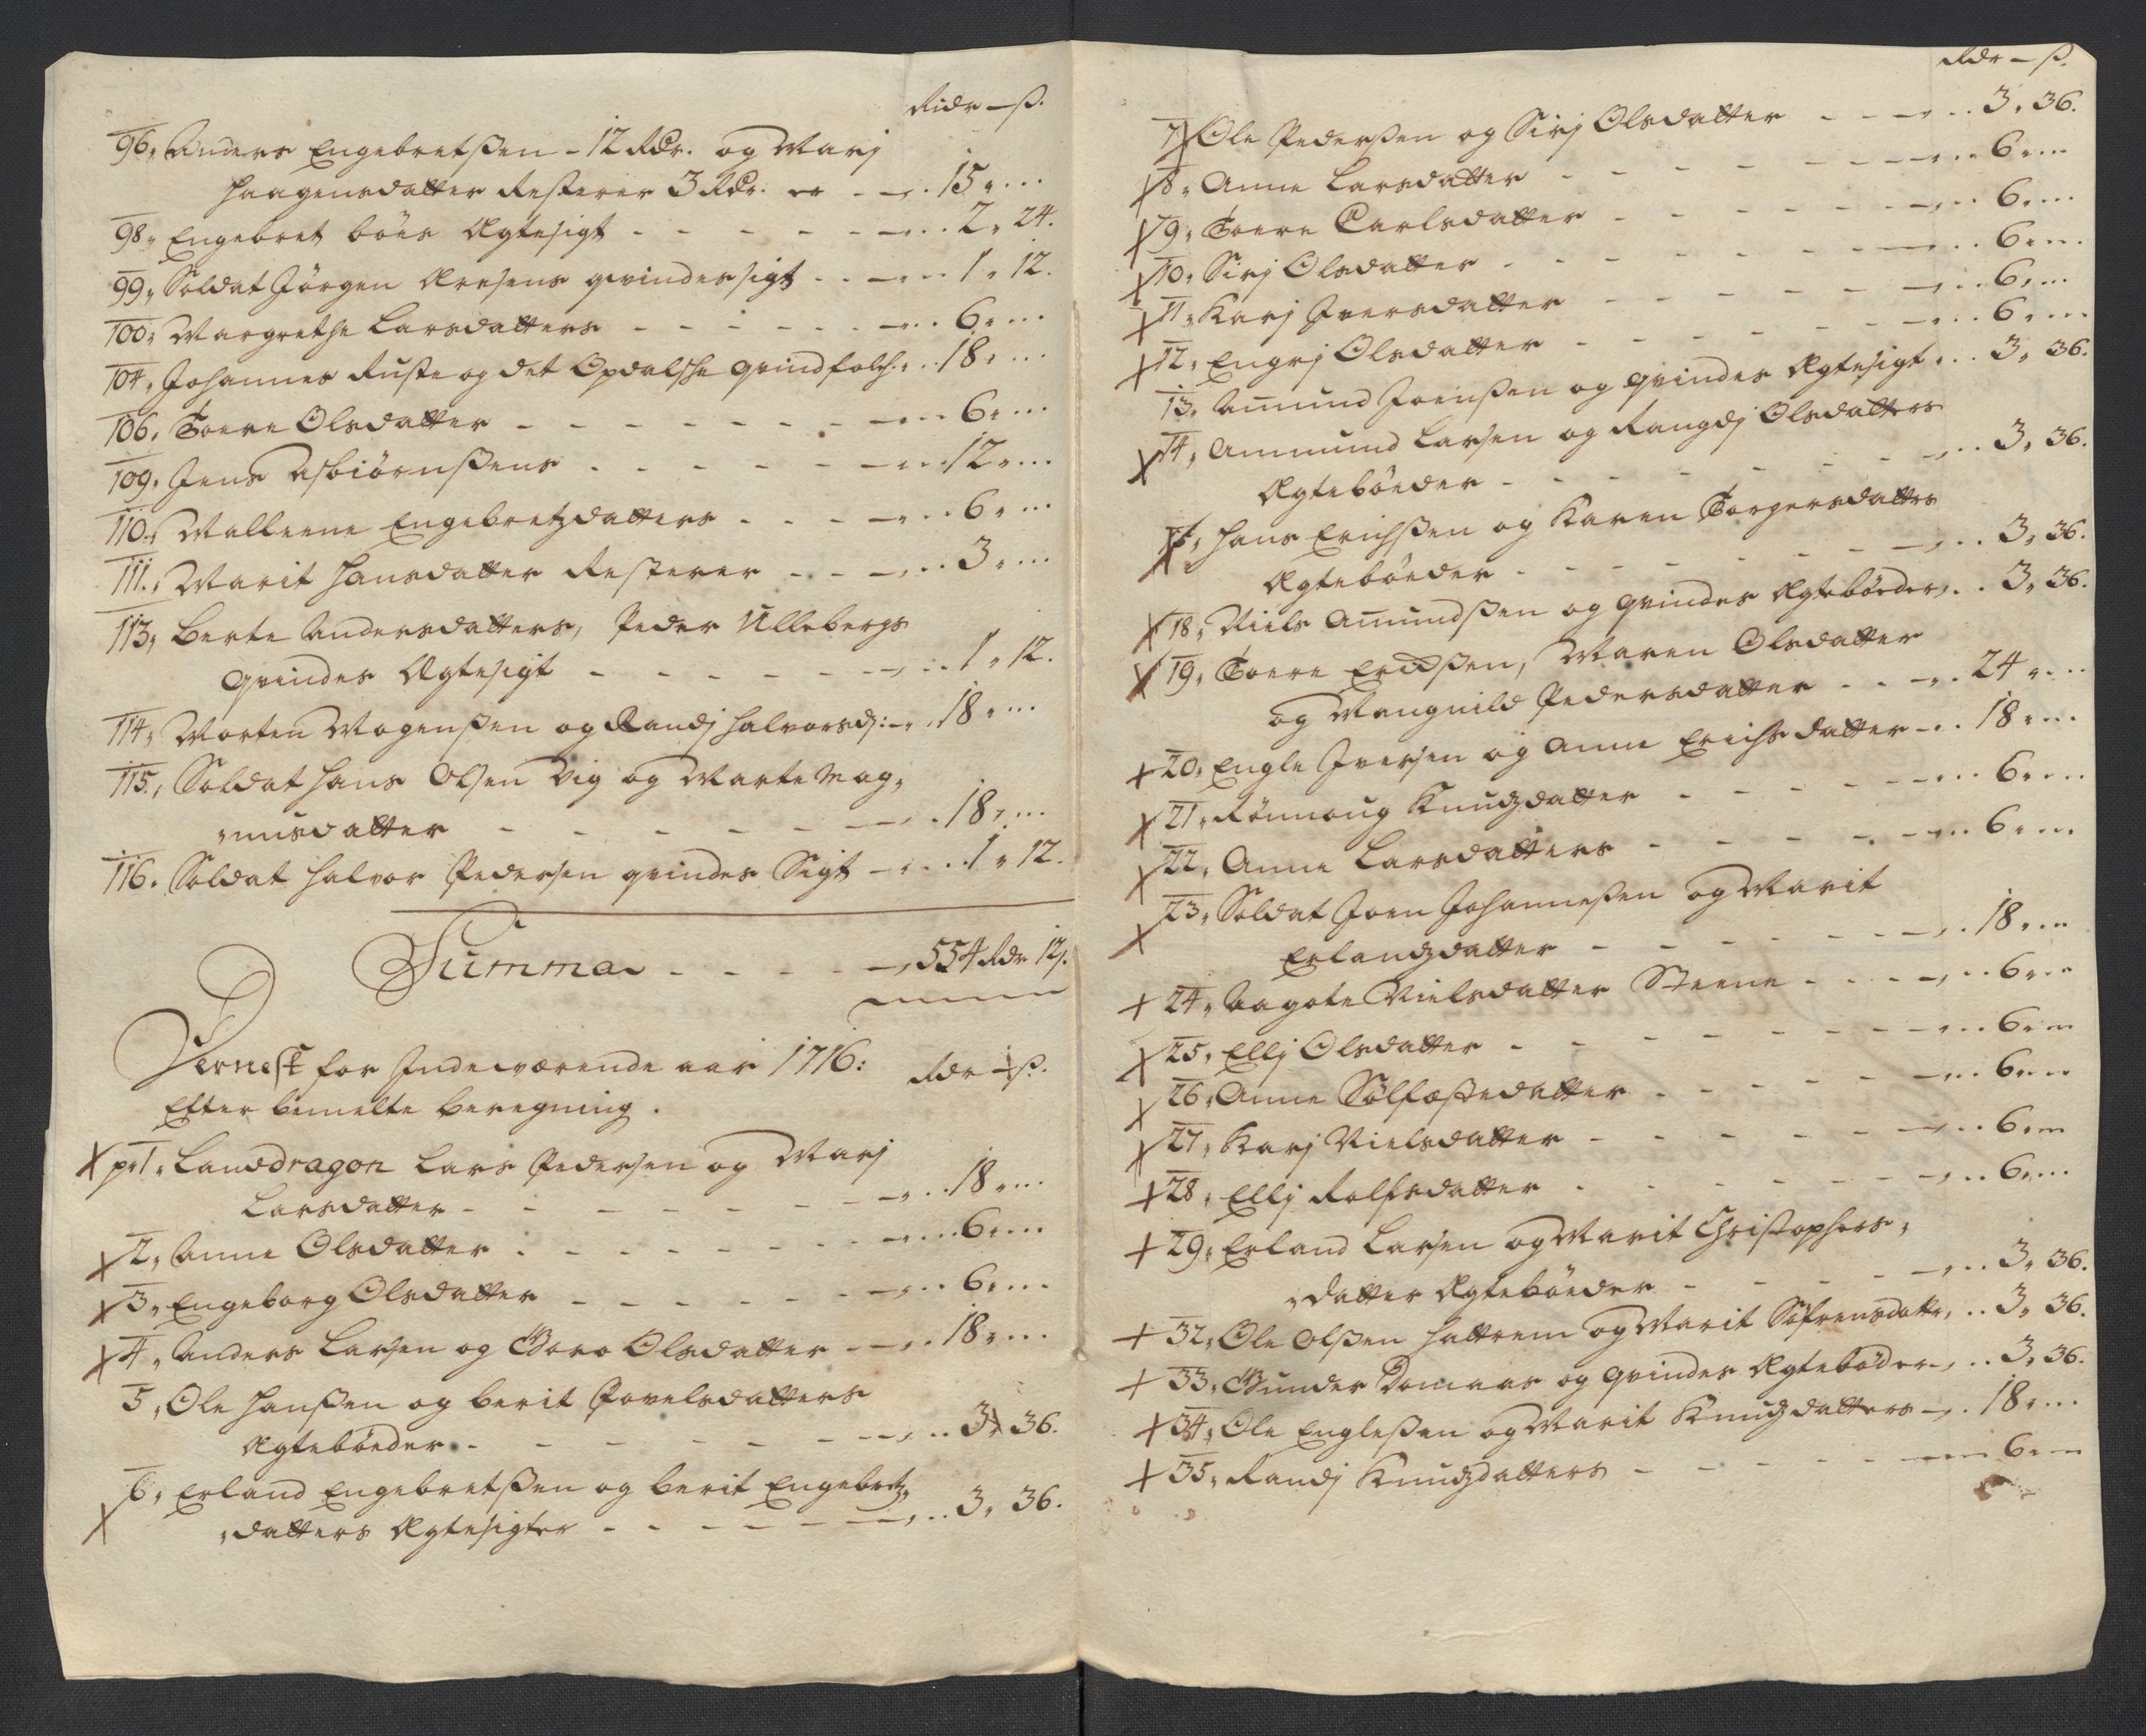 Ridr – ß.
96, Anders Engebretßen – 12 Rdr. og Marj
Haagensdatter Resterer 3 Rdr. er – – 15 „ ...
98, Engebret böes Ægtesigt – – – 2 „ 24.
99, Soldat Jörgen Aresens qvindes sigt – – 1 „ 12.
100, Margrethe Larsdatters – – – 6 „ ...
104, Johannes Ruste og det Opdalsche qvindfolch .. 18 „ ...
106, Toere Olsdatter – – – 6 „ ...
109, Jens Asbiörnßens – – – 12 „ ...
110, Malleene Engebretzdatters – – – 6 „ ...
111, Marit Hansdatter Resterer – – – 3 „ ...
113, Berte Andersdatters, Peder Ullebergs
qvindes Ægtesigt – – – 1 „ 12.
114, Morten Mogenßen og Randj Halvorsdr: – 18 „ ...
115, Soldat Hans Olsen Vig og Marte Mag„
„nusdatter – – – 18 „ ...
116, Soldat Halvor Pedersen qvindes Sigt – 1 „ 12.
Summa – – – 554 Rdr 12 ß.
Dernest for Indeværende aar 1716: Rdr – ß.
Efter bemelte beregning.
X pr 1, Landdragon Lars Pedersen og Marj
Larsdatter – – – 18 „ ...
X 2, Anne Olsdatter – – – 6 „ ...
X 3, Engeborg Olsdatter – – – 6 „ ...
X 4, Anders Larsen og Goro Olsdatter – – 18 „ ...
5, Ole Hanßen og Berit Povelsdatters
Ægtebøeder – – – 3 „ 36.
X 6, Erland Engebretßen og Berit Engebretz„
„datters Ægtesigter – – – 3 „ 36.
Rdr – ß.
7, Ole Pederßen og Sirj Olsdatter – – – 3 „ 36.
X 8, Anne Larsdatter – – – 6 „ ...
X 9, Toere Carlsdatter – – – 6 „ ...
X 10, Sirj Olsdatter – – – 6 „ ...
X 11, Karj Iversdatter – – – 6 „ ...
X 12, Engrj Olsdatter – – – 6 „ ...
13, Amund Joenßen og qvindes Ægtesigt . . 3 „ 36.
X 14, Ammund Larsen og Rangdj Olsdatters
Ægtebøeder – – – 3 „ 36.
X Hans Erichßen og Karen Torgersdatters
Ægtebøeder – – – 3 „ 36.
X 18, Niels Amundßen og qvindes Ægtebøeder, . . 3 „ 36.
X 19, Toere Erichßen, Maren Olsdatter
og Mangnild Pedersdatter – – – 24 „ ...
X 20, Engle Iversen og Anne Erichsdatter – . . 18 „ ...
X 21, Rönnoug Knudzdatter – – – 6 „ ...
X 22, Anne Larsdatters – – – 6 „ ...
X 23, Soldat Joen Johanneßen og Marit
Erlandzdatter – – – 18 „ ...
X 24, Aagote Nielsdatter Steene – – – 6 „ ...
X 25, Ellj Olsdatter – – – 6 „ ...
X 26, Anne Sölfæstedatter – – – 6 „ ...
X 27, Karj Nielsdatter – – – 6 „ ...
X 28, Ellj Rolfsdatter – – – 6 „ ...
X 29, Erland Larsen og Marit Christophers„
„datter Ægtebøeder – – – 3 „ 36.
X 32, Ole Olßen Hattrem og Marit Söfrensdattr, . . 3 „ 36.
X 33, Gunder Domaas og qvindes Ægtebøder – . . 3 „ 36.
X 34, Ole Engleßen og Marit Knudzdatters – . 18 „ ...
X 35, Randj Knudzdatters – – – 6 „ ...